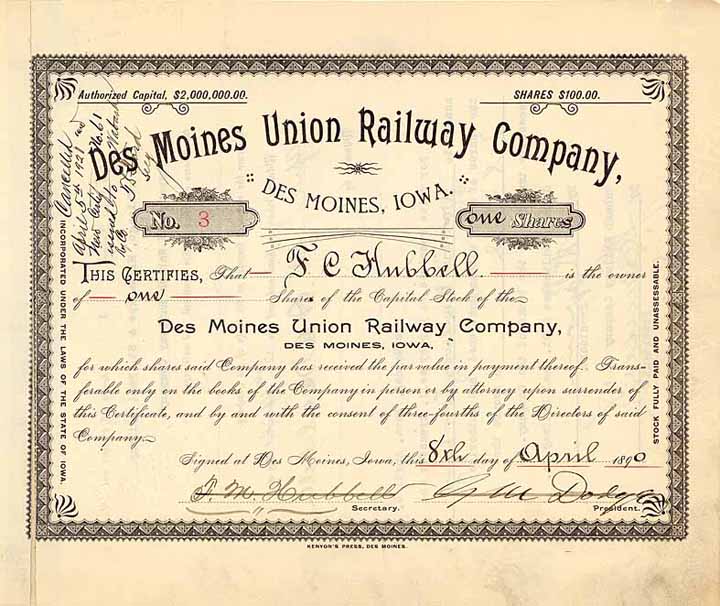 Authorized Capital, $2,000,000.00.
SHARES $100.00.
Des Moines Union Railway Company,
DES MOINES, IOWA.
No. 3
one Shares
THIS CERTIFIES, That F C Hubbell. is the owner
of one Shares of the Capital Stock of the
Des Moines Union Railway Company,
DES MOINES, IOWA,
for which shares said Company has received the par value in payment thereof. Trans-
ferable only on the books of the Company in person or by attorney upon surrender of
this Certificate, and by and with the consent of three-fourths of the Directors of said
Company.
Signed at Des Moines, Iowa, this 8th day of April 1890
F. M. Hubbell G M Dodge
Secretary. President.
KENYON'S PRESS, DES MOINES.
INCORPORATED UNDER THE LAWS OF THE STATE OF IOWA.
STOCK FULLY PAID AND UNASSESSABLE.
Cancelled
April 5th 1921 and
New Certf No. 61
issued to